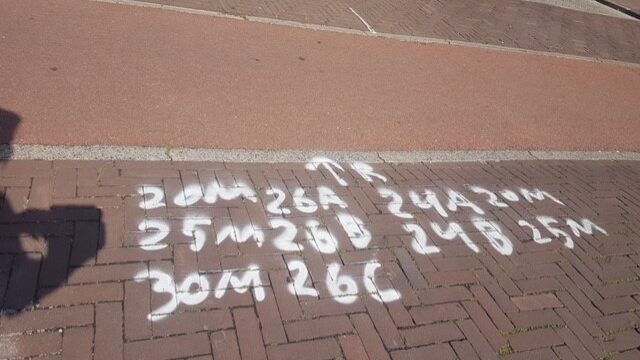 ↑K
20M 26A 24A 20M
25M 26B 24B 25M
30M 26C